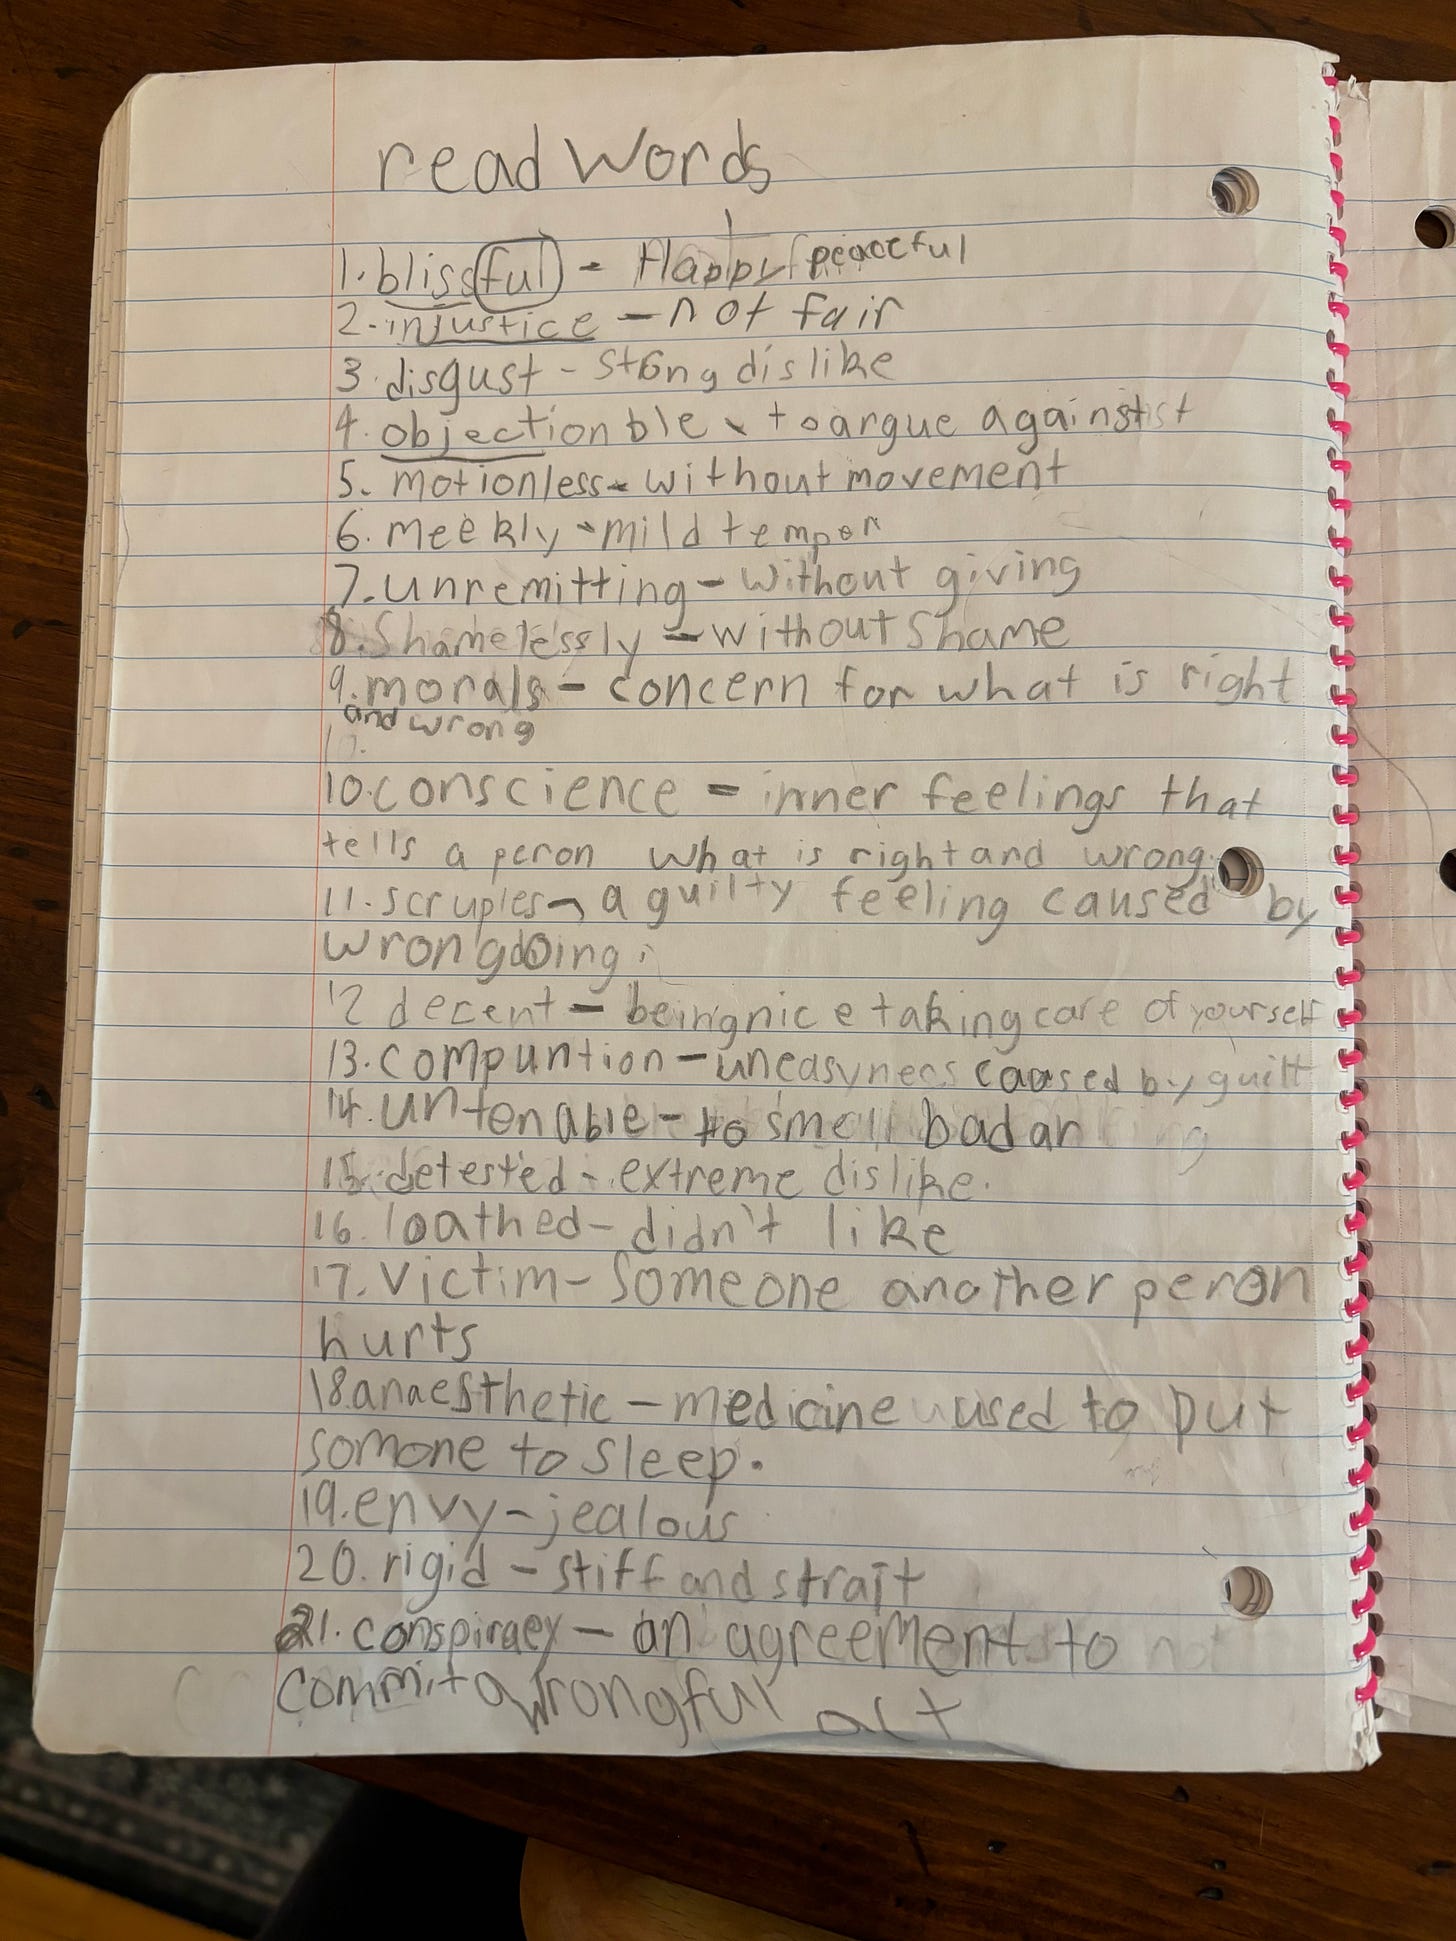 read words
1. blissful - Happy peaceful
2. injustice - not fair
3. disgust - strong dislike
4. objectionble - to argue against
5. motionless - without movement
6. meekly - mild temper
7. unremitting - without giving
8. Shamelessly - without shame
9. morals - concern for what is right
and wrong
10. conscience = inner feelings that
tells a peron what is right and wrong.
11. scruples - a guilty feeling caused by
wrongdoing.
12 decent - being nice taking care of yourself
13. compuntion - uneasyness caused by guilt
14. untenable - to smell bad
15. detested - extreme dislike.
16. loathed - didn't like
17. victim - Someone another peron
hurts
18 anaesthetic - medicine used to put
somone to sleep.
19. envy - jealous
20. rigid - stiff and strait
21. conspiracy - an agreement to
commit a wrongful act